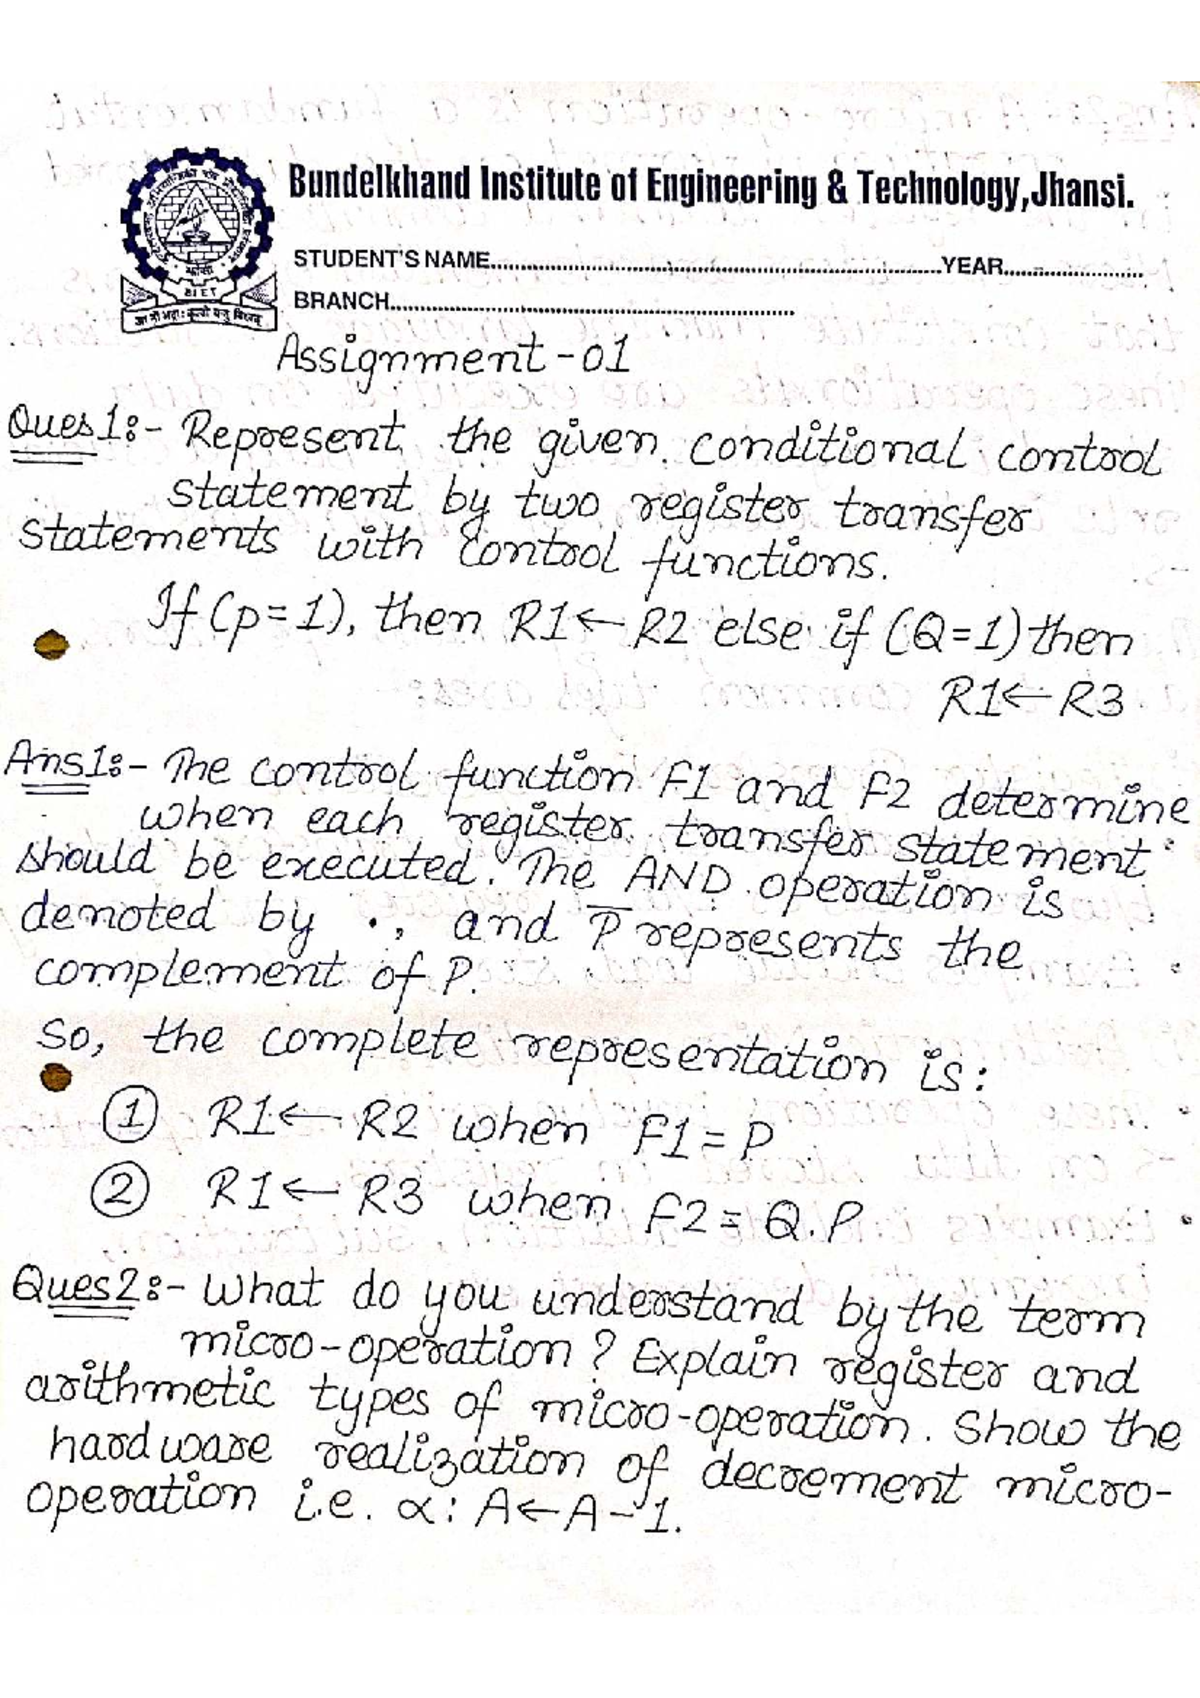 Bundelkhand Institute of Engineering & Technology, Jhansi.
STUDENT'S NAME..........YEAR..........
BIET
झाँसी
BRANCH..........
Assignment - 01
Ques1:- Represent the given conditional control
statement by two register transfer
statements with control functions.
If (p=1), then R1← R2 else if (Q=1) then
R1← R3
Ans1:- The control function F1 and F2 determine
when each register transfer statement
should be executed. The AND operation is
denoted by ·, and P̅ represents the
complement of P.
So, the complete representation is:
① R1← R2 when F1 = P
② R1← R3 when F2 = Q.P
Ques2:- What do you understand by the term
micro-operation? Explain register and
arithmetic types of micro-operation. Show the
hardware realization of decrement micro-
operation i.e. α: A←A-1.